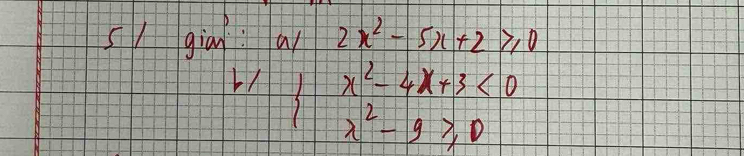 5/ giải: a/ 2x² - 5x + 2 ≥ 0
b/ { x² - 4x + 3 < 0
x² - 9 ≥ 0